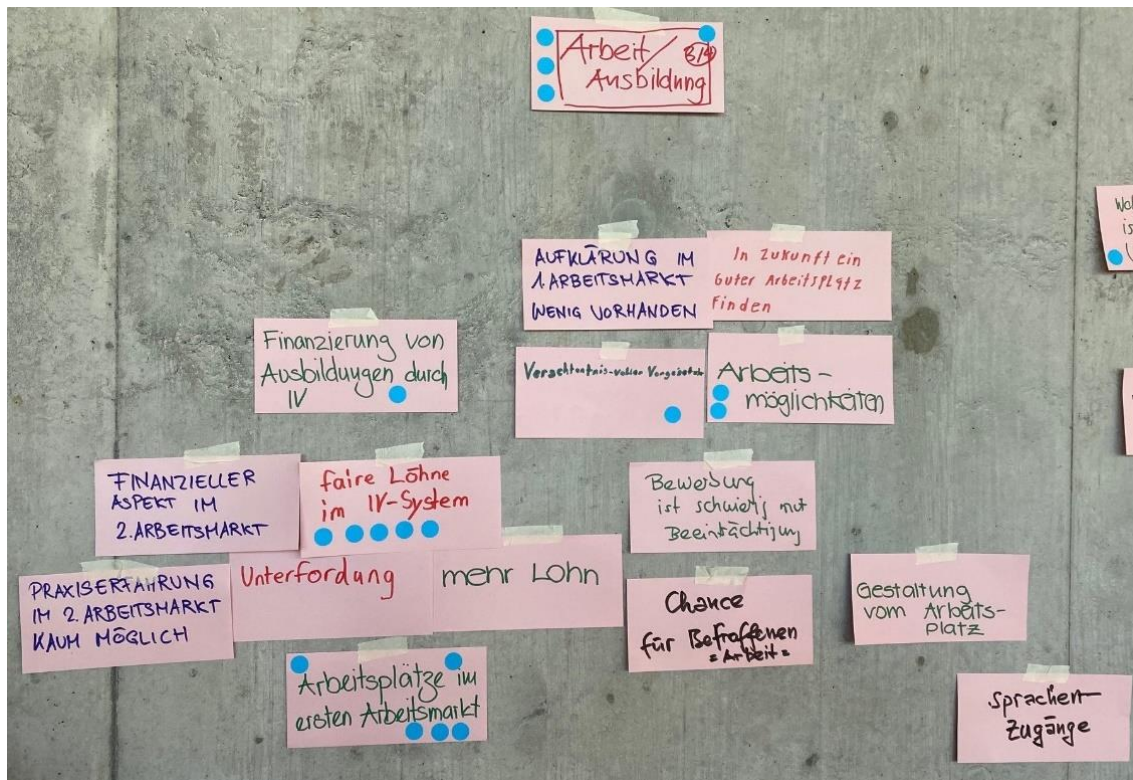 Arbeit/
Ausbildung
3/4
AUFKLÄRUNG IM
1. ARBEITSMARKT
WENIG VORHANDEN
In Zukunft ein
Guter Arbeitsplatz
Finden
Finanzierung von
Ausbildungen durch
IV
Arbeits-
möglichkeiten
FINANZIELLER
ASPEKT IM
2. ARBEITSMARKT
faire Löhne
im IV-System
Bewerbung
ist schwierig mit
Beeinträchtigung
PRAXISERFAHRUNG
IM 2. ARBEITSMARKT
KAUM MÖGLICH
Unterfordung
mehr Lohn
Chance
für Betroffenen
= Arbeit =
Gestaltung
vom Arbeits-
Platz
Arbeitsplätze im
ersten Arbeitsmarkt
Sprachen-
Zugänge